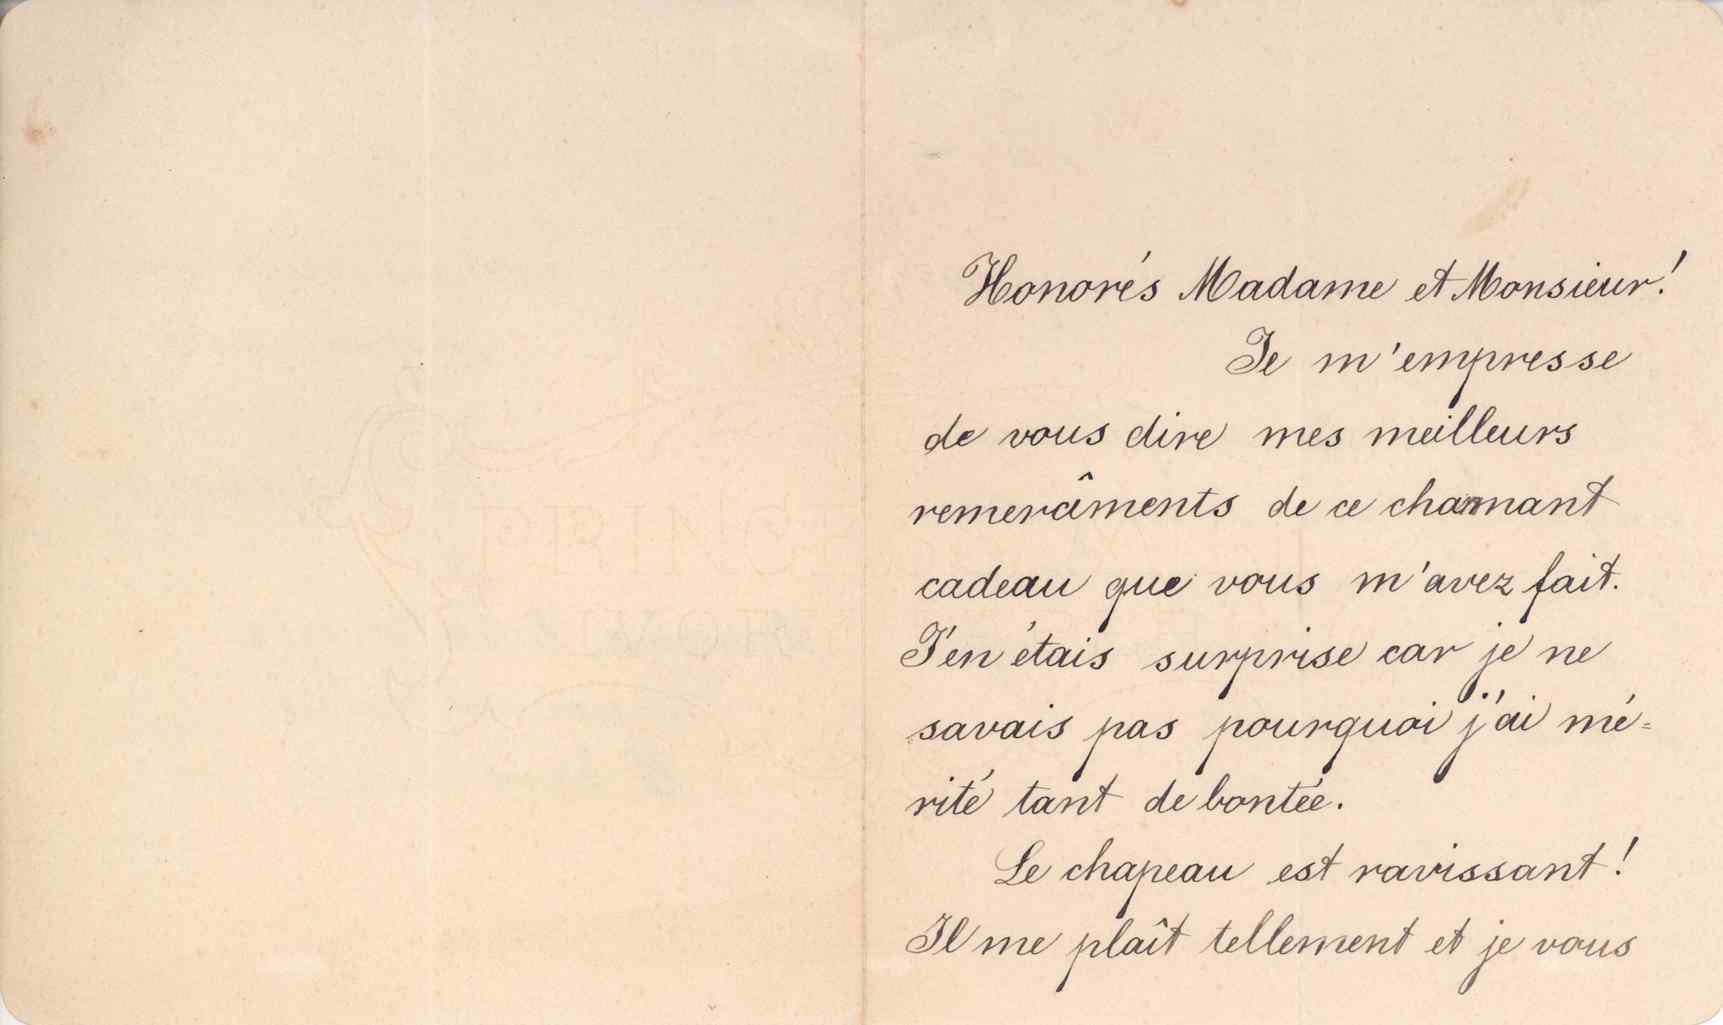 Honorés Madame et Monsieur!
Je m'empresse
de vous dire mes meilleurs
remercîments de ce charmant
cadeau que vous m'avez fait.
J'en étais surprise car je ne
savais pas pourquoi j'ai mé=
rité tant de bontée.
Le chapeau est ravissant!
Il me plaît tellement et je vous